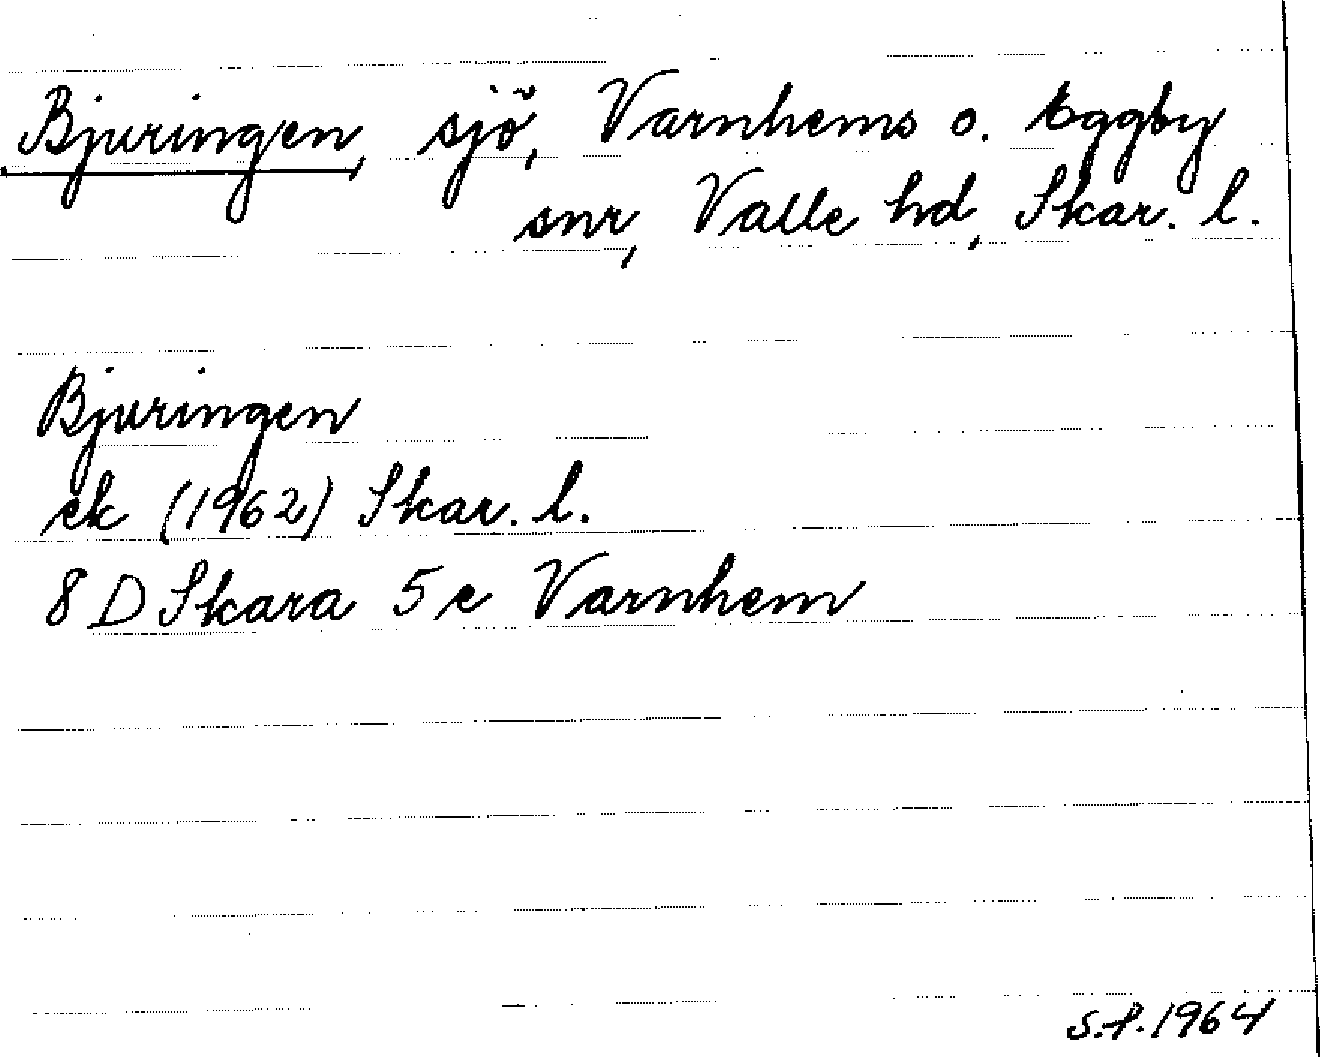 Bjuringen, sjö, Varnhems o. Eggby
snr, Valle hd, Skar. l.
Bjuringen
ek (1962) Skar. l.
8 D Skara 5 e Varnhem
S.P. 1964